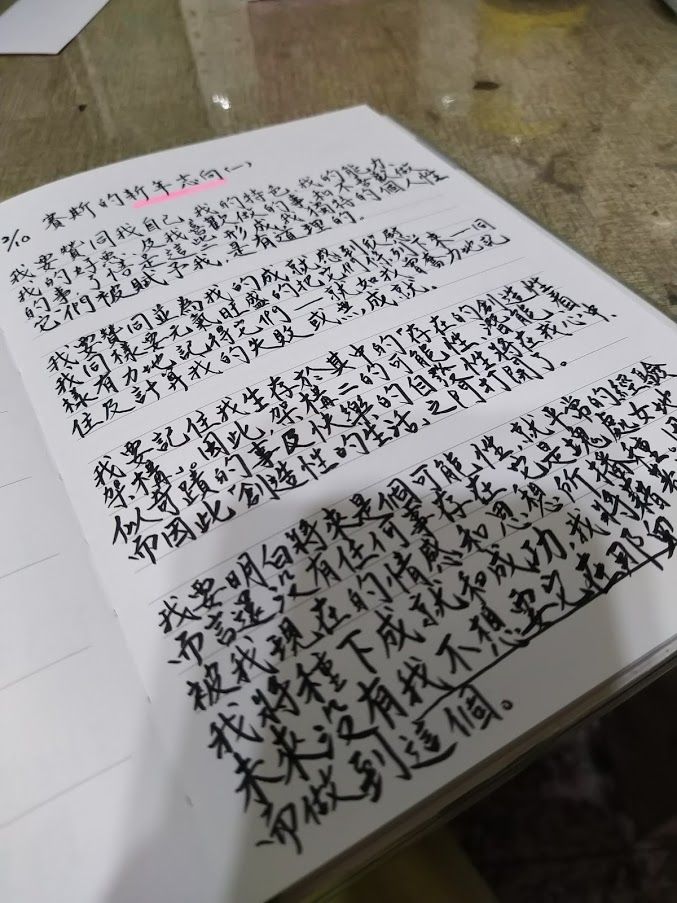 2/10 賽斯的新年志向(一)
我要贊同我自己,我的特色,我的能力,
我的好惡,及我喜歡做的事和不喜歡做
的事,了悟是這些形成我獨特的個人性
它們被賦予我,是有道理的。
我要贊同並為我的成就感到欣慰
我同樣要元氣旺盛的把它們條列下來一同
樣有力地記得它們——就如我曾奮力地記
住及計算我的失敗或無成就。
我要記住我生存於其中的「存在的創造性
架構」。因此架構二的可能性、潛能、看
似奇蹟的事及快樂的自發性將在我心中.
而因此創造性的生活之門打開了。
我要明白將來是個可能性.就平常的經驗
而言還沒有任何事存在.它是塊處女地
被我現在的情感和思想所播種.因
我將種下成就和成功.我將藉著
未來沒有我不想要又在那里
而做到這個。